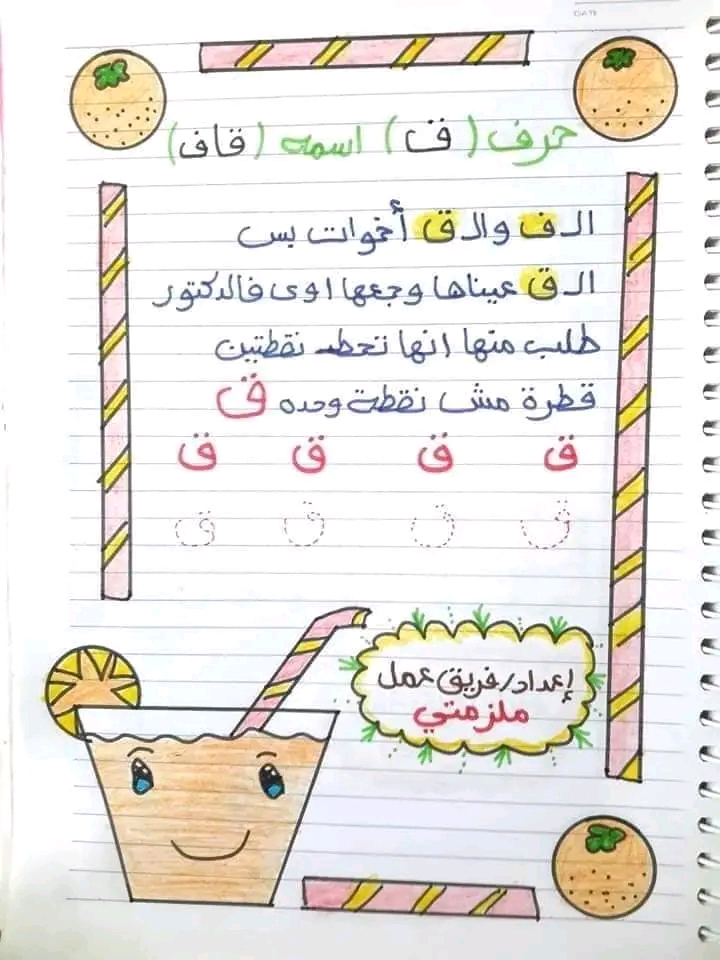 DATE
حرف ( ق ) اسمه ( قاف )
الـ ف والـ ق أخوات بس
الـ ق عيناها وجعها اوى فالدكتور
طلب منها انها تحط نقطتين
قطرة مش نقطة وحده ق
ق ق ق ق
ق ق ق ق
إعداد/فريق عمل
ملزمتي